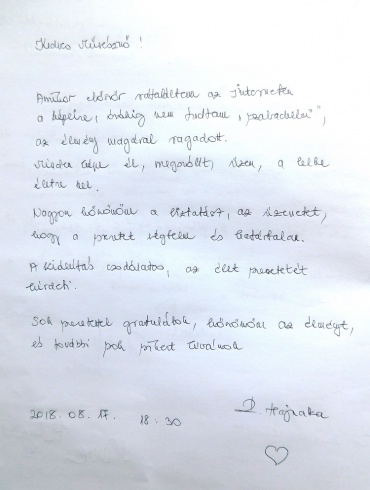 Kedves Művésznő!
Amikor először rátaláltam az interneten
a képeire, órákig nem tudtam „szabadulni”,
az élmény magával ragadott.
Minden képe él, megérint, üzen, a lelke
életre kel.
Nagyon köszönöm a biztatást, az üzenetet,
hogy a szeretet végtelen és határtalan.
A kiállítás csodálatos, az élet szeretetét
hirdeti.
Sok szeretettel gratulálok, köszönöm az élményt,
és további sok sikert kívánok
2018. 08. 17. 18:30